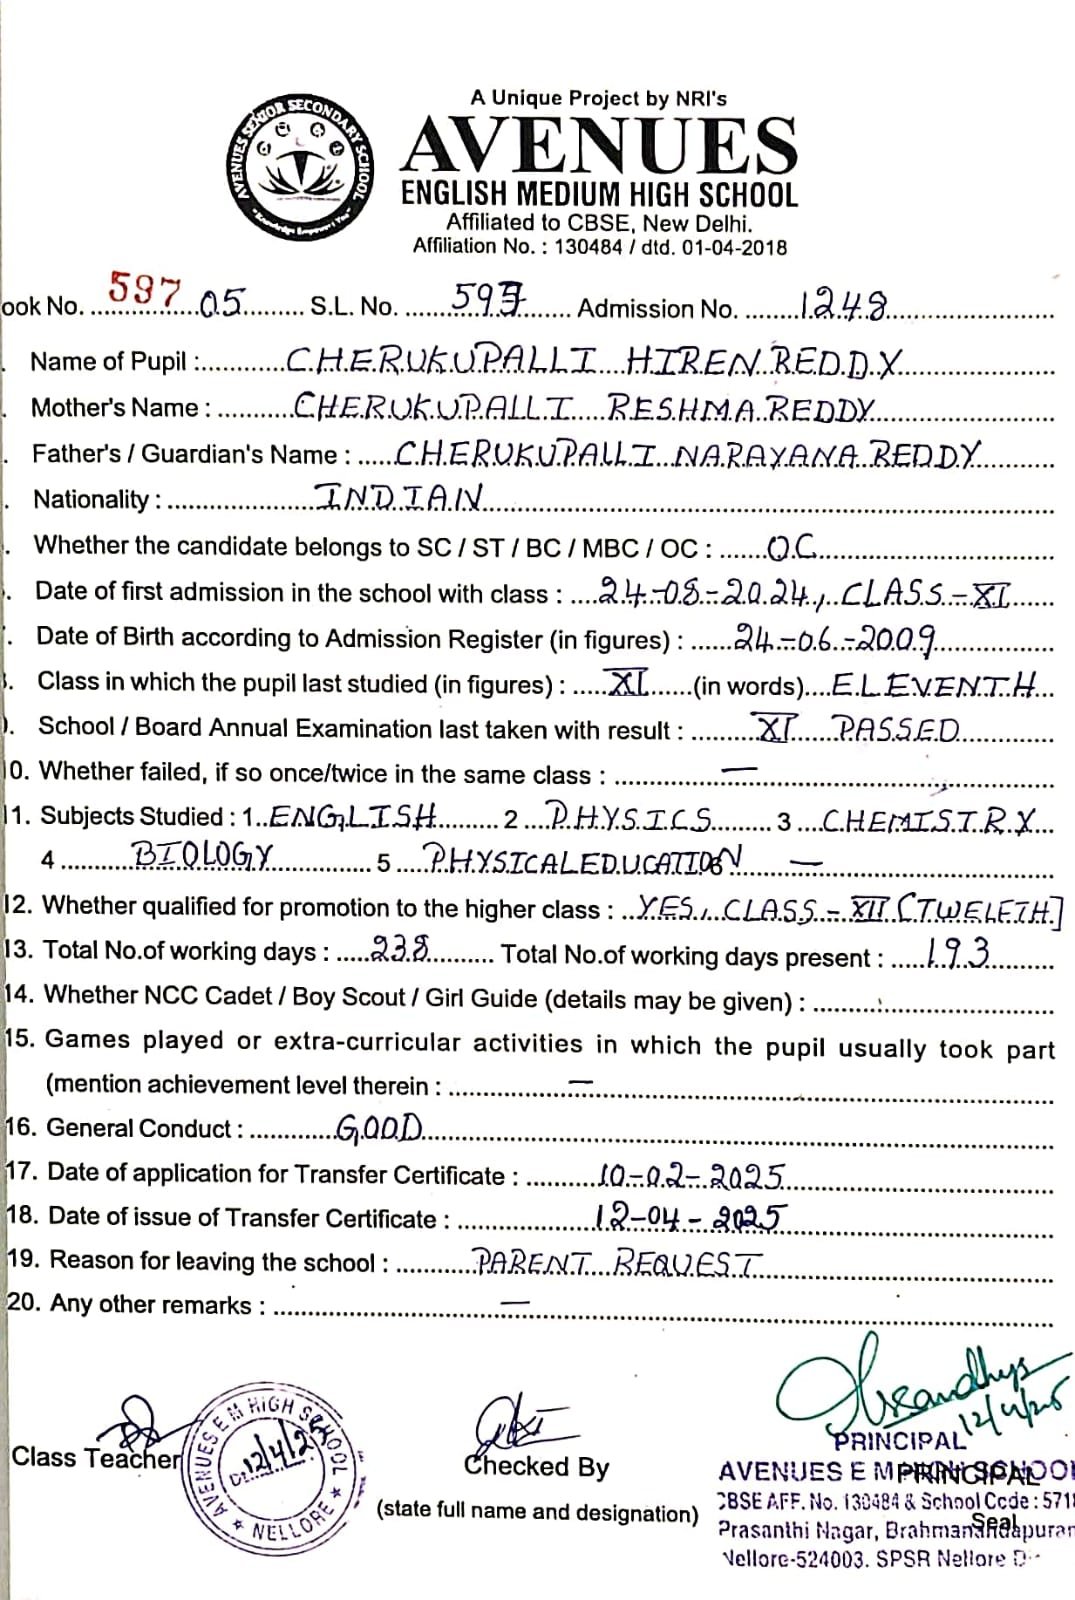 A Unique Project by NRI's
AVENUES
ENGLISH MEDIUM HIGH SCHOOL
Affiliated to CBSE, New Delhi.
Affiliation No. : 130484 / dtd. 01-04-2018
AVENUES SENIOR SECONDARY SCHOOL
"Knowledge Empowers You"
ook No. 597 05 S.L. No. 597 Admission No. 1248
Name of Pupil : CHERUKUPALLI HIREN REDDY
Mother's Name : CHERUKUPALLI RESHMA REDDY
Father's / Guardian's Name : CHERUKUPALLI NARAYANA REDDY
Nationality : INDIAN
Whether the candidate belongs to SC / ST / BC / MBC / OC : OC
Date of first admission in the school with class : 24-08-2024, CLASS-XI
Date of Birth according to Admission Register (in figures) : 24-06-2009
Class in which the pupil last studied (in figures) : XI (in words) ELEVENTH
School / Board Annual Examination last taken with result : XI PASSED
0. Whether failed, if so once/twice in the same class : —
11. Subjects Studied : 1. ENGLISH 2 PHYSICS 3 CHEMISTRY
4 BIOLOGY 5 PHYSICAL EDUCATION —
12. Whether qualified for promotion to the higher class : YES, CLASS - XII (TWELETH]
13. Total No.of working days : 238 Total No.of working days present : 193
14. Whether NCC Cadet / Boy Scout / Girl Guide (details may be given) :
15. Games played or extra-curricular activities in which the pupil usually took part
(mention achievement level therein : —
16. General Conduct : GOOD
17. Date of application for Transfer Certificate : 10-02-2025
18. Date of issue of Transfer Certificate : 12-04-2025
19. Reason for leaving the school : PARENT REQUEST
20. Any other remarks : —
12/4/25
Class Teacher
AVENUES E M HIGH SCHOOL
Dt. 12/4/25
★ NELLORE ★
Checked By
(state full name and designation)
PRINCIPAL
AVENUES E M
PRINCIPAL
CBSE AFF. No. 130484 & School Code : 571
Seal
Prasanthi Nagar, Brahmanandapuram
Nellore-524003. SPSR Nellore